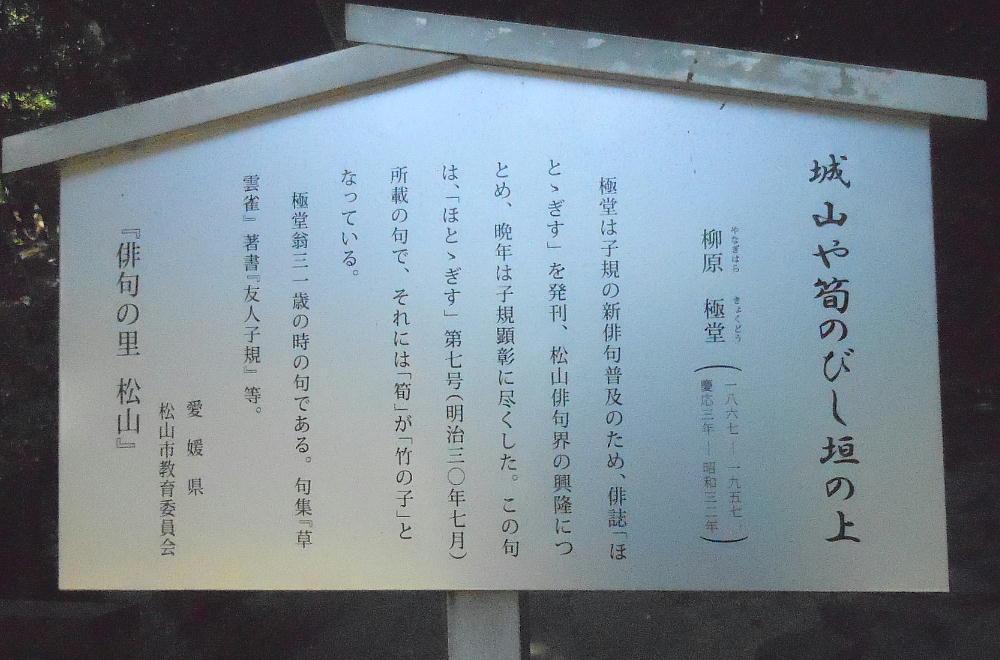 城山や筍のびし垣の上
やなぎはら きょくどう
柳原 極堂
一八六七―一九五七
慶応三年―昭和三二年
極堂は子規の新俳句普及のため、俳誌「ほ
とゝぎす」を発刊、松山俳句界の興隆につ
とめ、晩年は子規顕彰に尽くした。この句
は、「ほとゝぎす」第七号(明治三〇年七月)
所載の句で、それには「筍」が「竹の子」と
なっている。
極堂翁三一歳の時の句である。句集『草
雲雀』著書『友人子規』等。
愛媛県
松山市教育委員会
『俳句の里 松山』